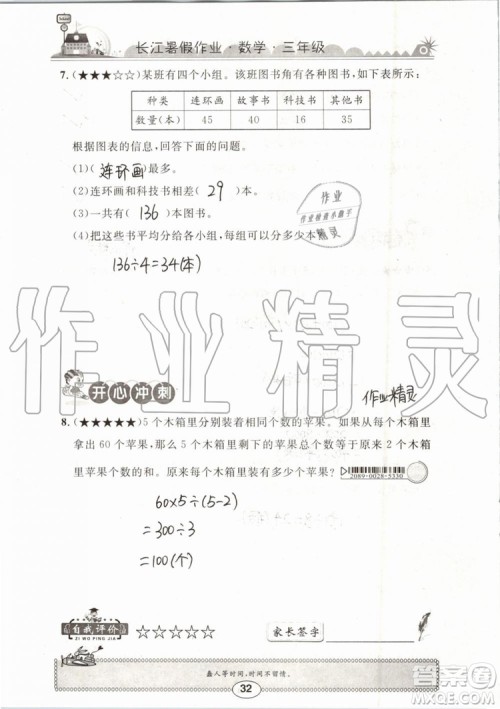 长江暑假作业·数学·三年级
7.(★★★☆☆)某班有四个小组。该班图书角有各种图书，如下表所示：
种类 连环画 故事书 科技书 其他书
数量(本) 45 40 16 35
根据图表的信息，回答下面的问题。
(1)(连环画)最多。
(2)连环画和科技书相差(29)本。
(3)一共有(136)本图书。
(4)把这些书平均分给各小组，每组可以分多少本
136÷4=34(本)
作业
作业检查小助手
精灵
作业精灵
开心冲刺
作业精灵
8.(★★★★★)5个木箱里分别装着相同个数的苹果。如果从每个木箱里
拿出60个苹果，那么5个木箱里剩下的苹果总个数等于原来2个木箱
里苹果个数的和。原来每个木箱里装有多少个苹果?
2089-0028-5330
60×5÷(5-2)
=300÷3
=100(个)
自我评价
ZI WO PING JIA
☆☆☆☆☆
家长签字
蠢人等时间，时间不留情。
32
答案圈
MXQE.COM